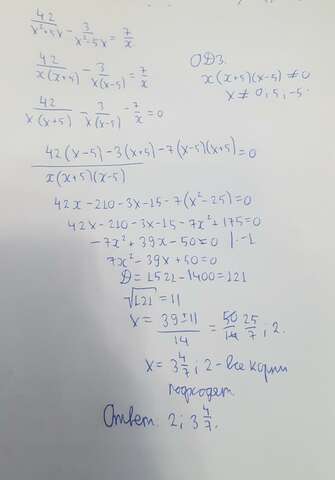 42/(x²+5x) - 3/(x²-5x) = 7/x
42/(x(x+5)) - 3/(x(x-5)) = 7/x
ОДЗ:
x(x+5)(x-5) ≠ 0
x ≠ 0, 5, -5.
42/(x(x+5)) - 3/(x(x-5)) - 7/x = 0
(42(x-5) - 3(x+5) - 7(x-5)(x+5))/(x(x+5)(x-5)) = 0
42x - 210 - 3x - 15 - 7(x²-25) = 0
42x - 210 - 3x - 15 - 7x² + 175 = 0
-7x² + 39x - 50 = 0 |·-1
7x² - 39x + 50 = 0
D = 1521 - 1400 = 121
√121 = 11
x = (39±11)/14 = 50/14 25/7; 2.
x = 3 4/7; 2 - все корни
подходят
Ответ: 2; 3 4/7.